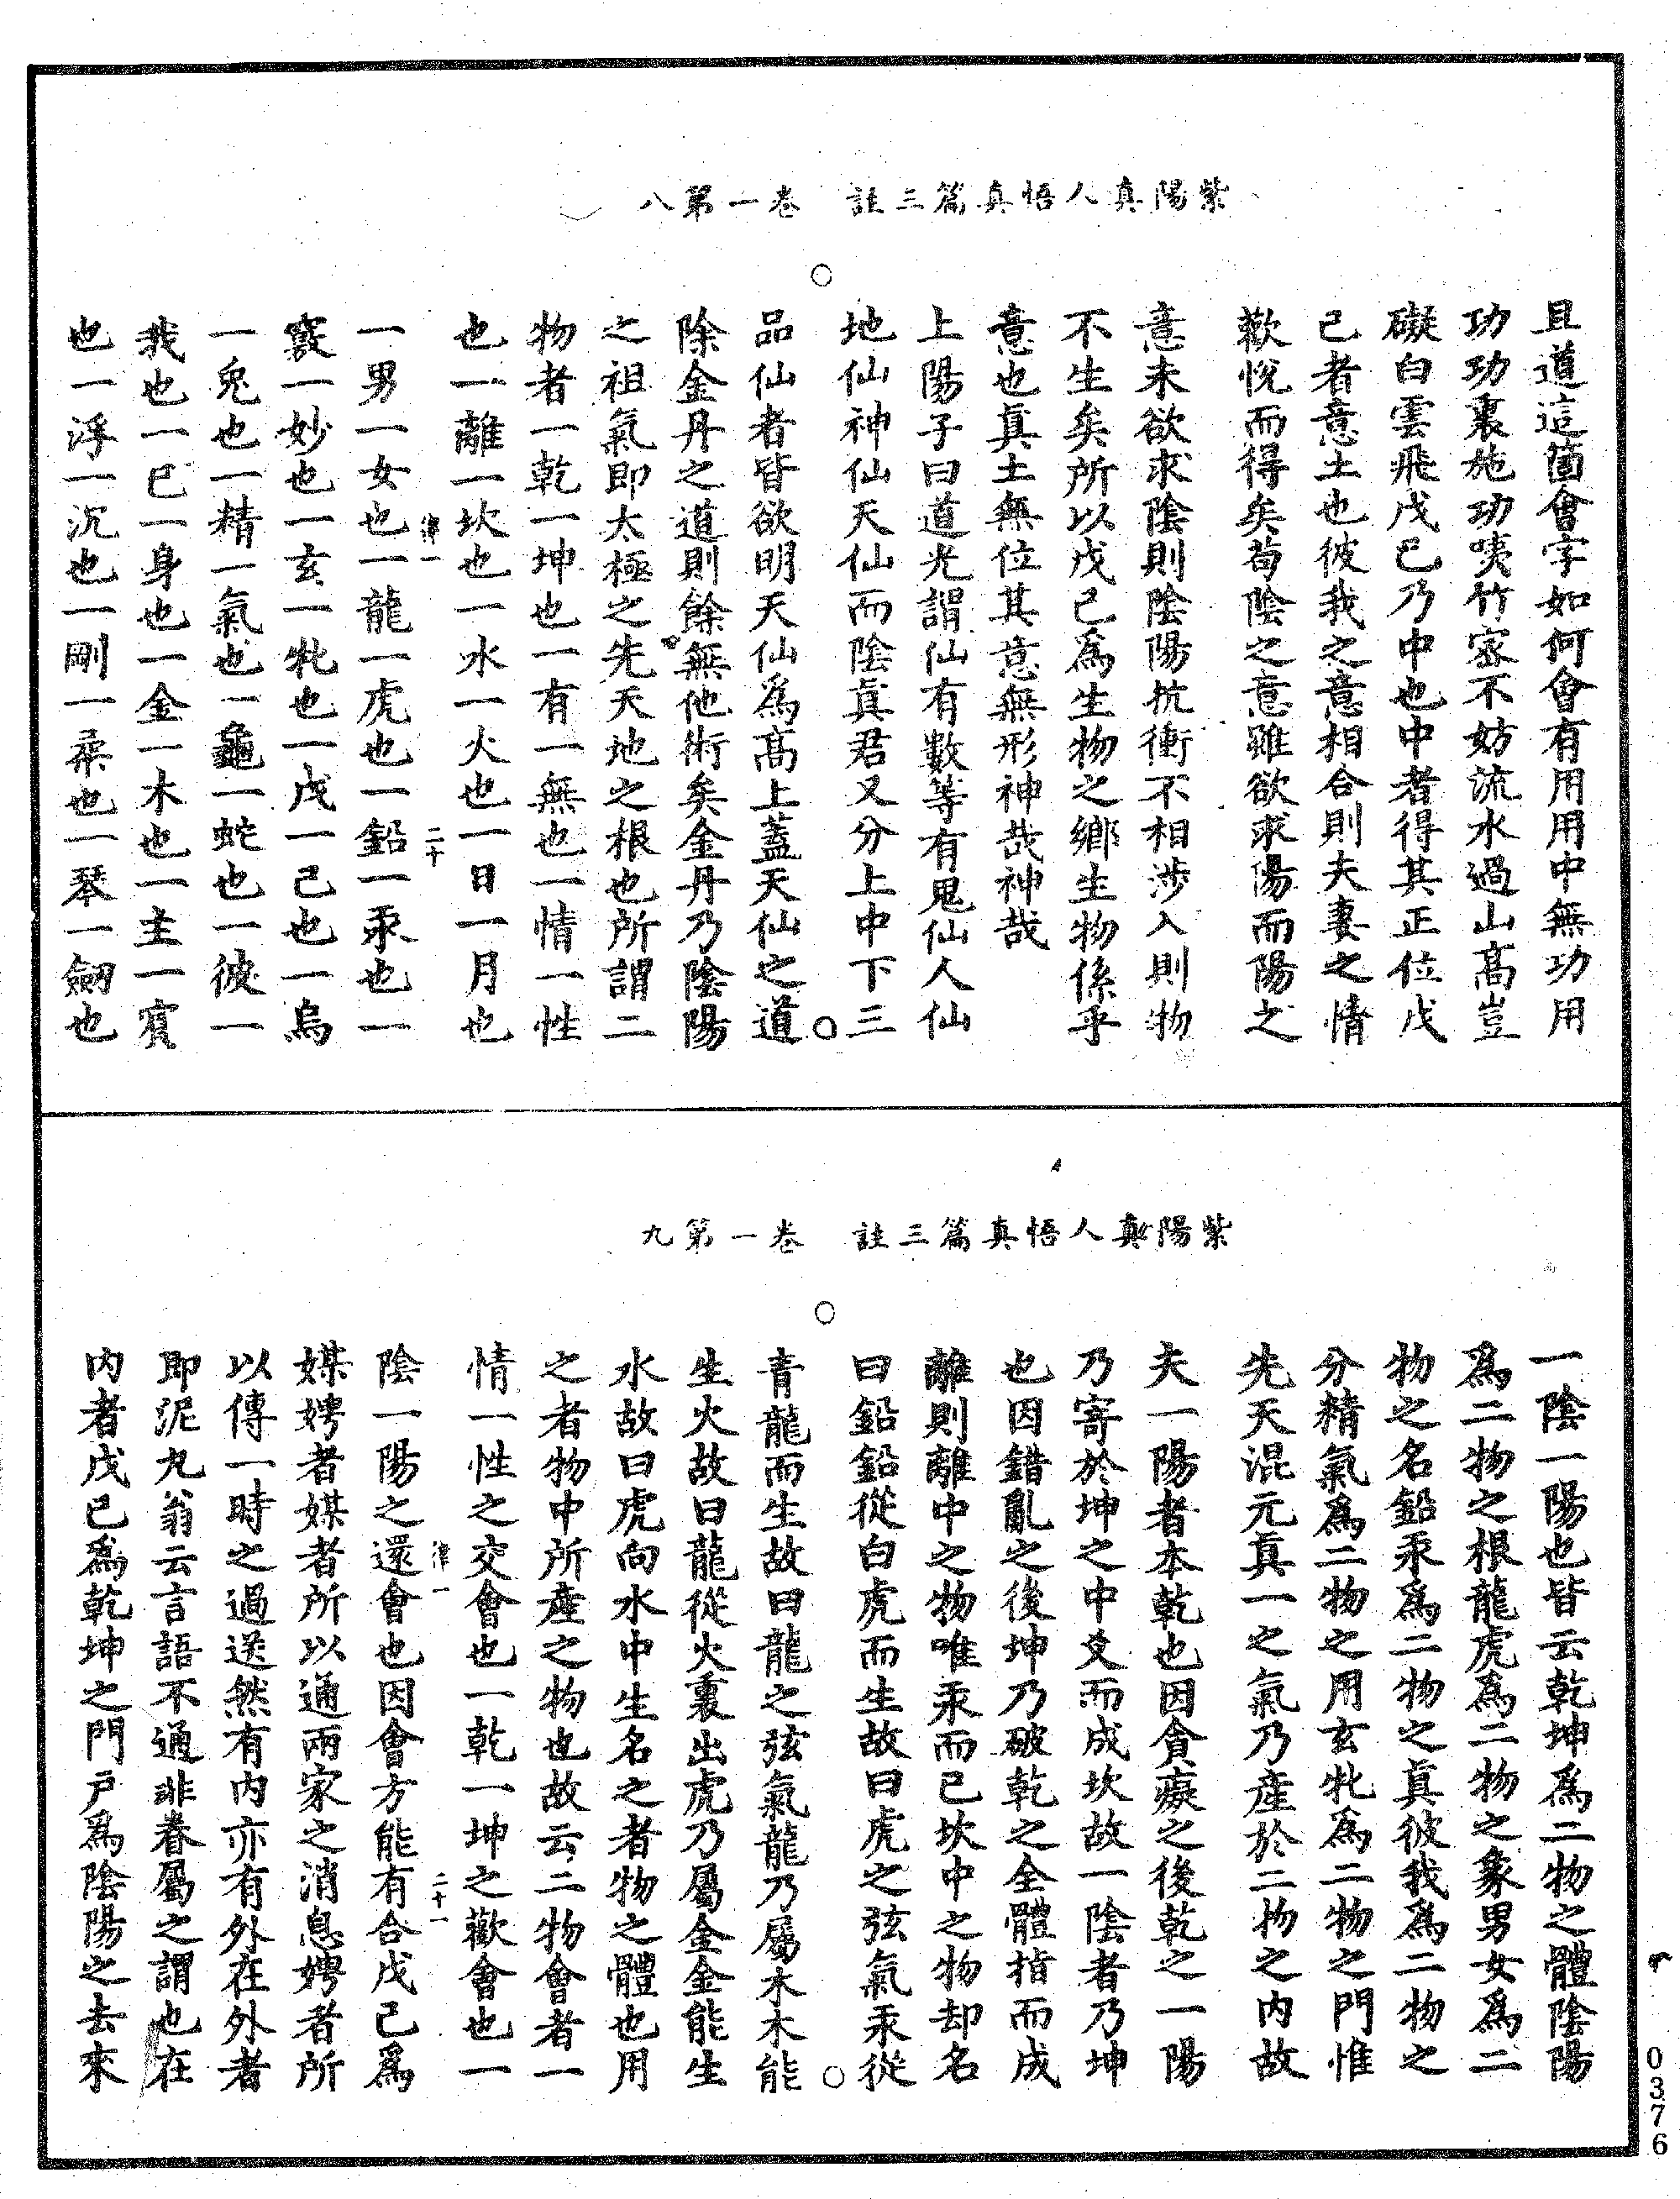 紫陽真人悟真篇三註　卷一第八
且道這箇會字如何會有用用中無功用
功功裏施功咦竹密不妨流水過山髙豈
礙白雲飛戊己乃中也中者得其正位戊
己者意土也彼我之意相合則夫妻之情
歡悅而得矣苟陰之意雖欲求陽而陽之
意未欲求陰則陰陽抗衝不相涉入則物
不生矣所以戊己為生物之鄉生物係乎
意也真土無位其意無形神哉神哉
上陽子曰道光謂仙有數等有鬼仙人仙
地仙神仙天仙而陰真君又分上中下三
品仙者皆欲明天仙為髙上蓋天仙之道
除金丹之道則餘無他術矣金丹乃陰陽
之祖氣即太極之先天地之根也所謂二
物者一乾一坤也一有一無也一情一性
也一離一坎也一水一火也一日一月也
律一　二十
一男一女也一龍一虎也一鉛一汞也一
竅一妙也一玄一牝也一戊一己也一烏
一兔也一精一氣也一龜一蛇也一彼一
我也一己一身也一金一木也一主一賓
也一浮一沉也一剛一柔也一琴一劒也
紫陽真人悟真篇三註　卷一第九
一陰一陽也皆云乾坤為二物之體陰陽
為二物之根龍虎為二物之象男女為二
物之名鉛汞為二物之真彼我為二物之
分精氣為二物之用玄牝為二物之門惟
先天混元真一之氣乃產於二物之内故
夫一陽者本乾也因貪癡之後乾之一陽
乃寄於坤之中爻而成坎故一陰者乃坤
也因錯亂之後坤乃破乾之全體指而成
離則離中之物唯汞而已坎中之物却名
曰鉛鉛從白虎而生故曰虎之弦氣汞從
青龍而生故曰龍之弦氣龍乃屬木木能
生火故曰龍從火裏出虎乃屬金金能生
水故曰虎向水中生名之者物之體也用
之者物中所產之物也故云二物會者一
情一性之交會也一乾一坤之歡會也一
律一　二十一
陰一陽之還會也因會方能有合戊己為
媒娉者媒者所以通兩家之消息娉者所
以傳一時之過送然有内亦有外在外者
即泥丸翁云言語不通非眷屬之謂也在
内者戊己為乾坤之門戶為陰陽之去來
0376